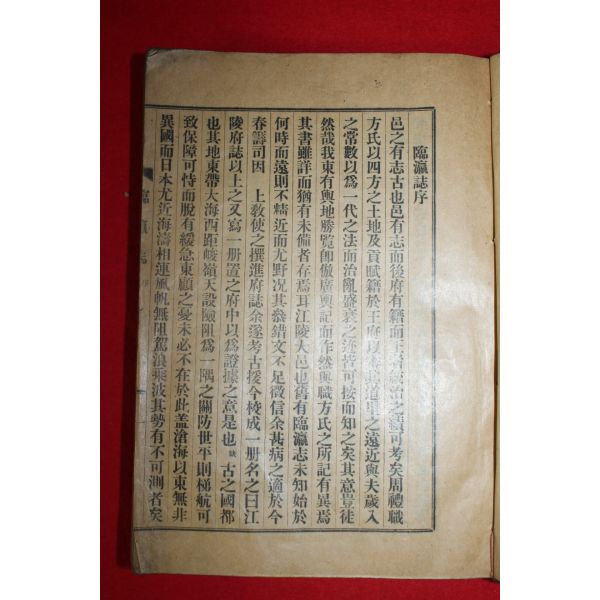 臨瀛誌序
邑之有志古也邑有志而後府有籍而王者統治之蹟可考矣周禮職
方氏以四方之土地及貢賦籍於王府以道里之遠近與夫歲入
之常數以爲一代之法而治亂盛衰之迹皆可按而知之矣其意豈徒
然哉我東有輿地勝覽卽倣廣輿記而作然與職方氏之所記有異焉
其書雖詳而猶有未備者存焉耳江陵大邑也舊有臨瀛志未知始於
何時而遠則不精近而尤野況其叅錯文不足徵信余甚病之適於今
春籌司因 上敎使之撰進府誌余遂考古援今棱成一册名之曰江
陵府誌以上之又寫一册置之府中以爲證據之意是也 缺 古之國都
也其地東帶大海西距峻嶺天設險阻爲一隅之關防世平則梯航可
致保障可恃而脫有緩急東顧之憂未必不在於此盖滄海以東無非
異國而日本尤近海濤相連風帆無阻駕浪乘波其勢有不可測者矣